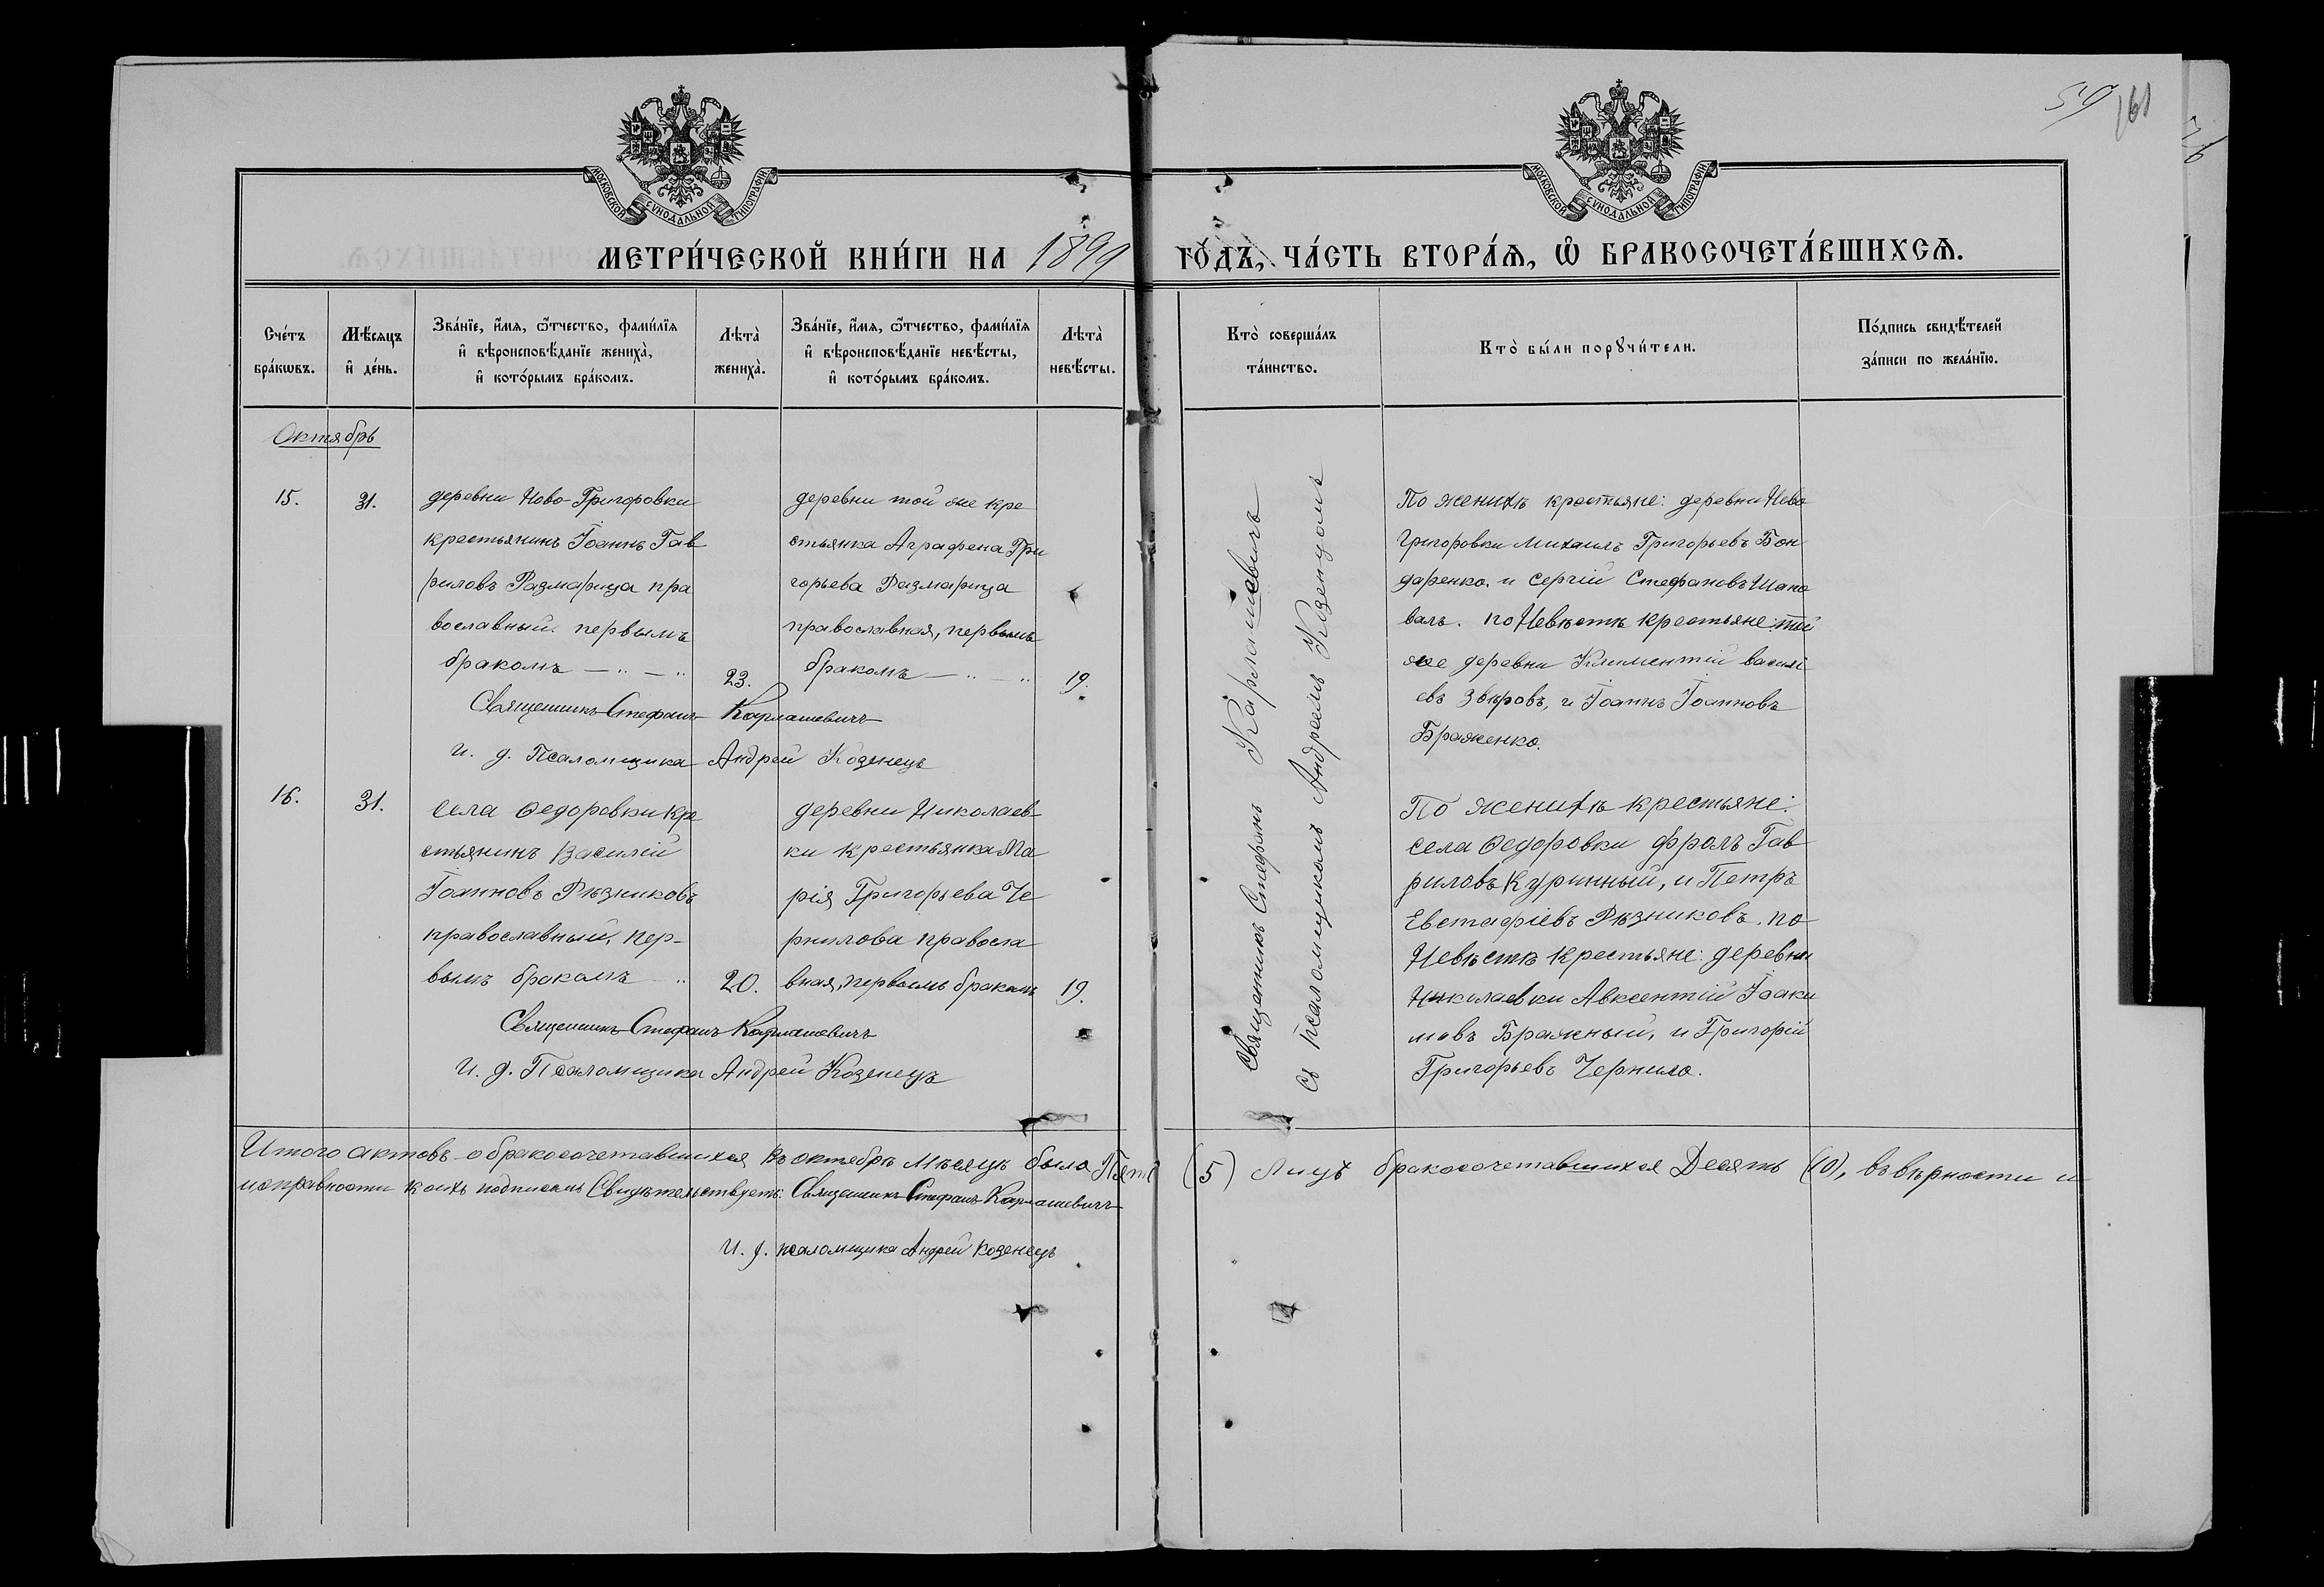 59 61
МОСКОВСКОЙ СУНОДАЛЬНОЙ ТИПОГРАФІИ
МОСКОВСКОЙ СУНОДАЛЬНОЙ ТИПОГРАФІИ
МЕТРИ́ЧЕСКОЙ КНИ́ГИ НА 1899 ГО́ДЪ, ЧА́СТЬ ВТОРА́Ѧ, Ѡ҆ БРАКОСОЧЕТА́ВШИХСѦ.
Сче́тъ
бра́кѡвъ.
Мѣ́сѧцъ
и҆ де́нь.
Зва́нїе, и҆́мѧ, ѻ҆́тчество, фами́лїѧ
и҆ вѣроисповѣ́данїе жениха̀,
и҆ кото́рымъ бра́комъ.
Лѣта̀
жениха̀.
Зва́нїе, и҆́мѧ, ѻ҆́тчество, фами́лїѧ
и҆ вѣроисповѣ́данїе невѣ́сты,
и҆ кото́рымъ бра́комъ.
Лѣта̀
невѣ́сты.
Кто̀ соверша́лъ
та́инство.
Кто̀ бы́ли порꙋчи́тели.
По́дпись свидѣ́телей
за́писи по жела́нїю.
Октябрь
15.
31.
деревни Ново-Григоровки
крестьянинъ Іоаннъ Гав
риловъ Размарица пра
вославный. первымъ
бракомъ — „ — „
23.
деревни той же кре
стьянка Аграфена Гри
горьева Размарица
православная, первымъ
бракомъ — „ — „
19.
Священникъ Стефанъ Кармашевичъ
И. д. Псаломщика Андрей Козенецъ
По женихѣ крестьяне: деревни Ново
Григоровки Михаилъ Григорьевъ Бон
даренко. и Сергій Стефановъ Шапо
валъ. по Невѣстѣ крестьяне: той
же деревни Климентій Василі
евъ Звѣровъ, и Іоаннъ Іоанновъ
Браженко.
16.
31.
Села Ѳедоровки кре
стьянинъ Василій
Іоанновъ Рѣзниковъ
православный, пер-
вымъ бракомъ — „
20.
деревни Николаев-
ки крестьянка Ма
рія Григорьева Че
рнилова правосла
вная, первымъ бракомъ
19.
Священникъ Стефанъ Кармашевичъ
И. д. Псаломщика Андрей Козенецъ
Священникъ Стефанъ Кармашевичъ
съ псаломщикомъ Андреемъ Козенцомъ
По женихѣ крестьяне:
села Ѳедоровки Фролъ Гав
риловъ Куринный, и Петръ
Евстафіевъ Рѣзниковъ. по
Невѣстѣ крестьяне: деревни
Николаевки Авксентій Іоаки
мовъ Бражный, и Григорій
Григорьевъ Чернило.
Итого актовъ о бракосочетавшихся въ октябрѣ мѣсяцѣ было Пять (5) Лицъ бракосочетавшихся Десять (10), въ вѣрности и
исправности коихъ подписомъ Свидѣтельствуетъ: Священникъ Стефанъ Кармашевичъ
И. д. псаломщика Андрей Козенецъ